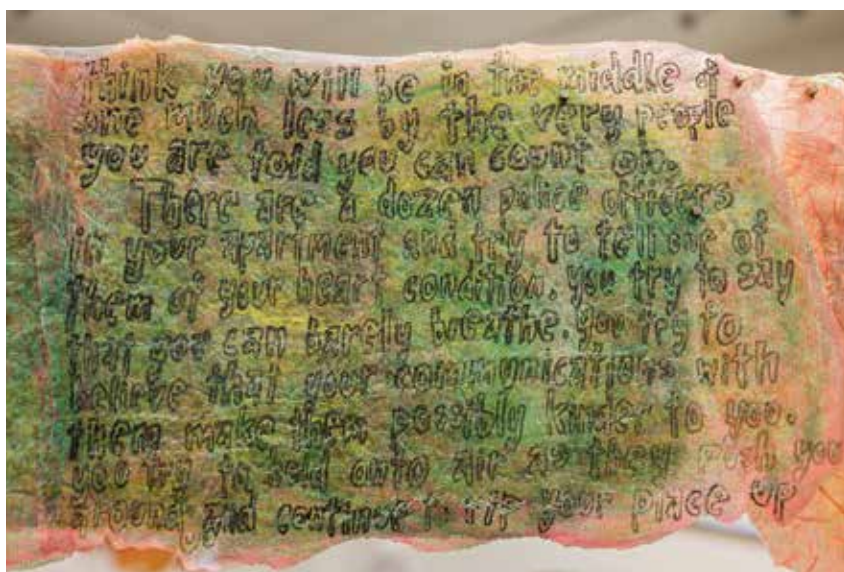 think you will be in the middle of
one much less by the very people
you are told you can count on.
There are a dozen police officers
in your apartment and try to tell one of
them of your heart condition. you try to say
that you can barely breathe. you try to
believe that your communications with
them make them possibly kinder to you.
you try to hold onto air as they push you
around and continue to rip your place up